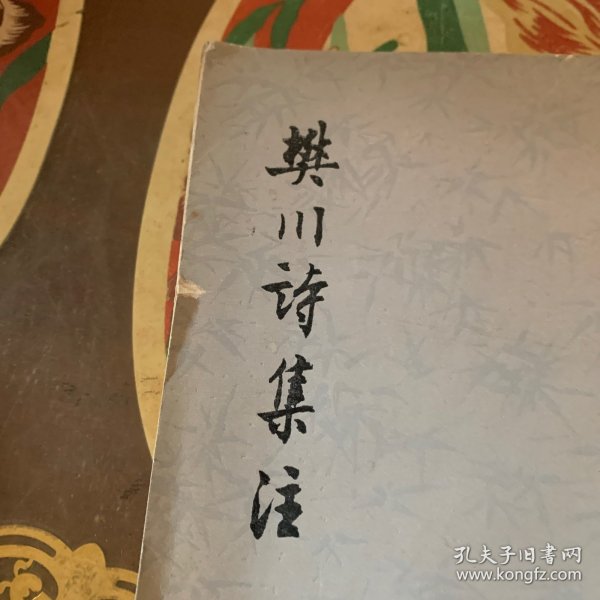 樊川詩集注
孔夫子旧书网
www.kongfz.com